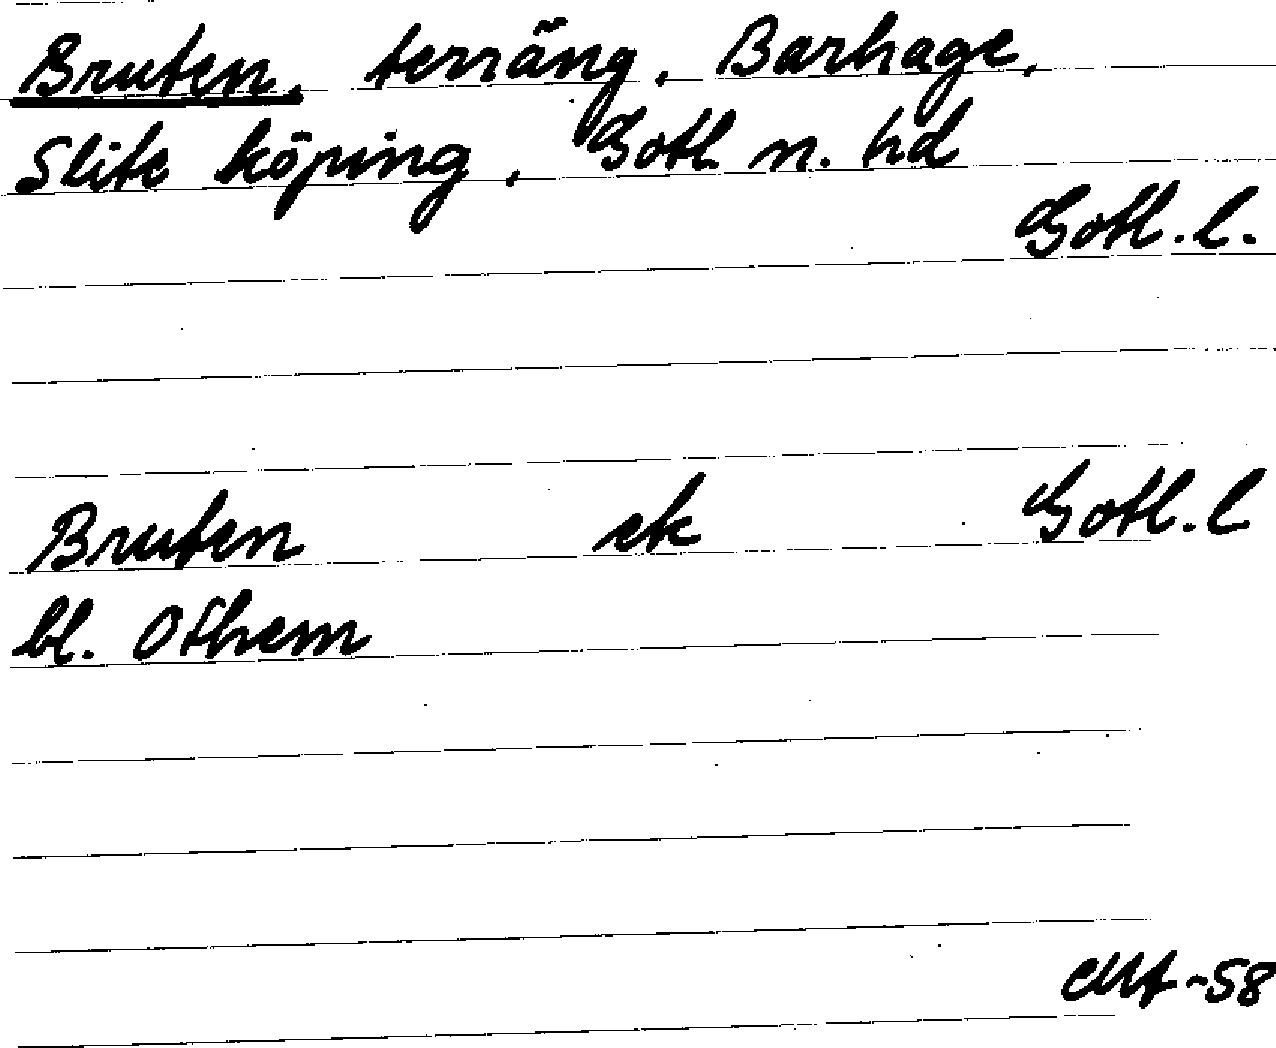 Bruten, terräng, Barhage,
Slite köping, Gotl n. hd
Gotl. l.
Bruten ek Gotl. l
bl. Othem
-58